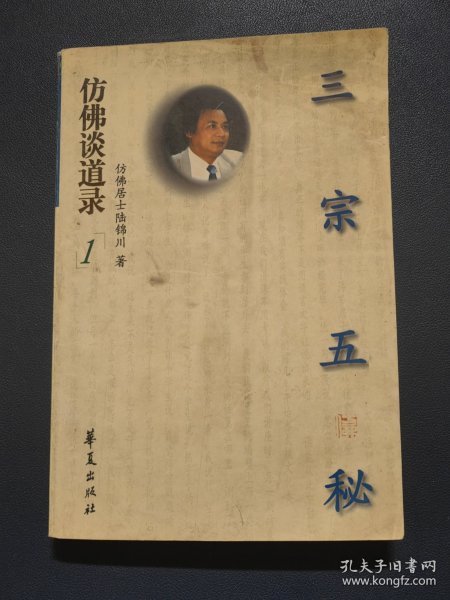 三宗五秘
仿佛谈道录
1
仿佛居士陆锦川 著
華夏出版社
孔夫子旧书网
www.kongfz.com